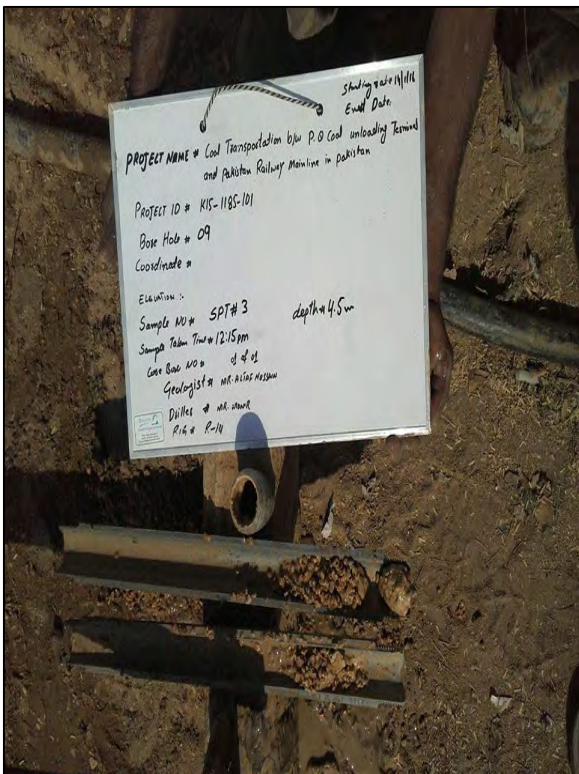 Starting Date 14/1/16
End Date:
PROJECT NAME # Coal Transportation b/w P.Q Coal unloading Terminal
and Pakistan Railway Mainline in pakistan
PROJECT ID # K15-1185-101
Bore Hole # 09
Coordinate #
ELEVATION :-
Sample NO # SPT # 3 depth # 4.5m
Sample Taken Time # 12:15pm
Core Box NO #
Geologist # MR. ALTAF HUSSAIN
Driller # MR.
RIG # R-14